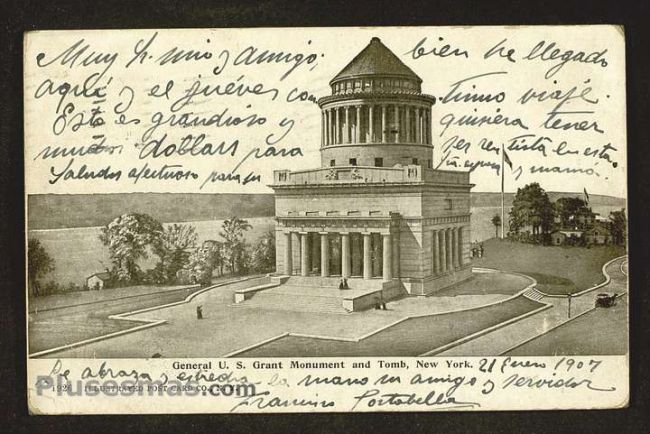 Muy Sr. mio y amigo, bien he llegado
aquí y el jueves con timo viaje.
Esto es grandioso y quisiera tener
muchos dollars para ser rentista en esta.
Saludos afectuosos para su y mamá
General U. S. Grant Monument and Tomb, New York. 21 Enero 1907
Le abraza y estrecha la mano su amigo y servidor
192 ILLUSTRATED POST CARD CO., N. Y.
Plusesmas.com
Francisco Portabella